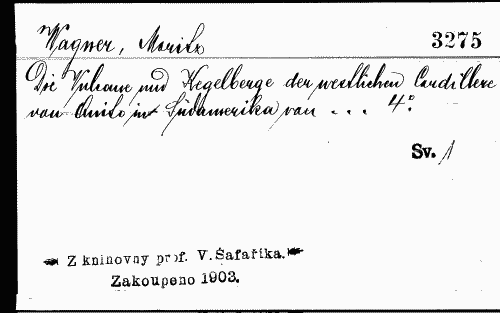 Wagner, Moritz
3275
Die Vulcane und Kegelberge der westlichen Cordillere
von Quito in Südamerika von ... 4°.
Sv. 1
Z knihovny prof. V. Šafaříka.
Zakoupeno 1903.